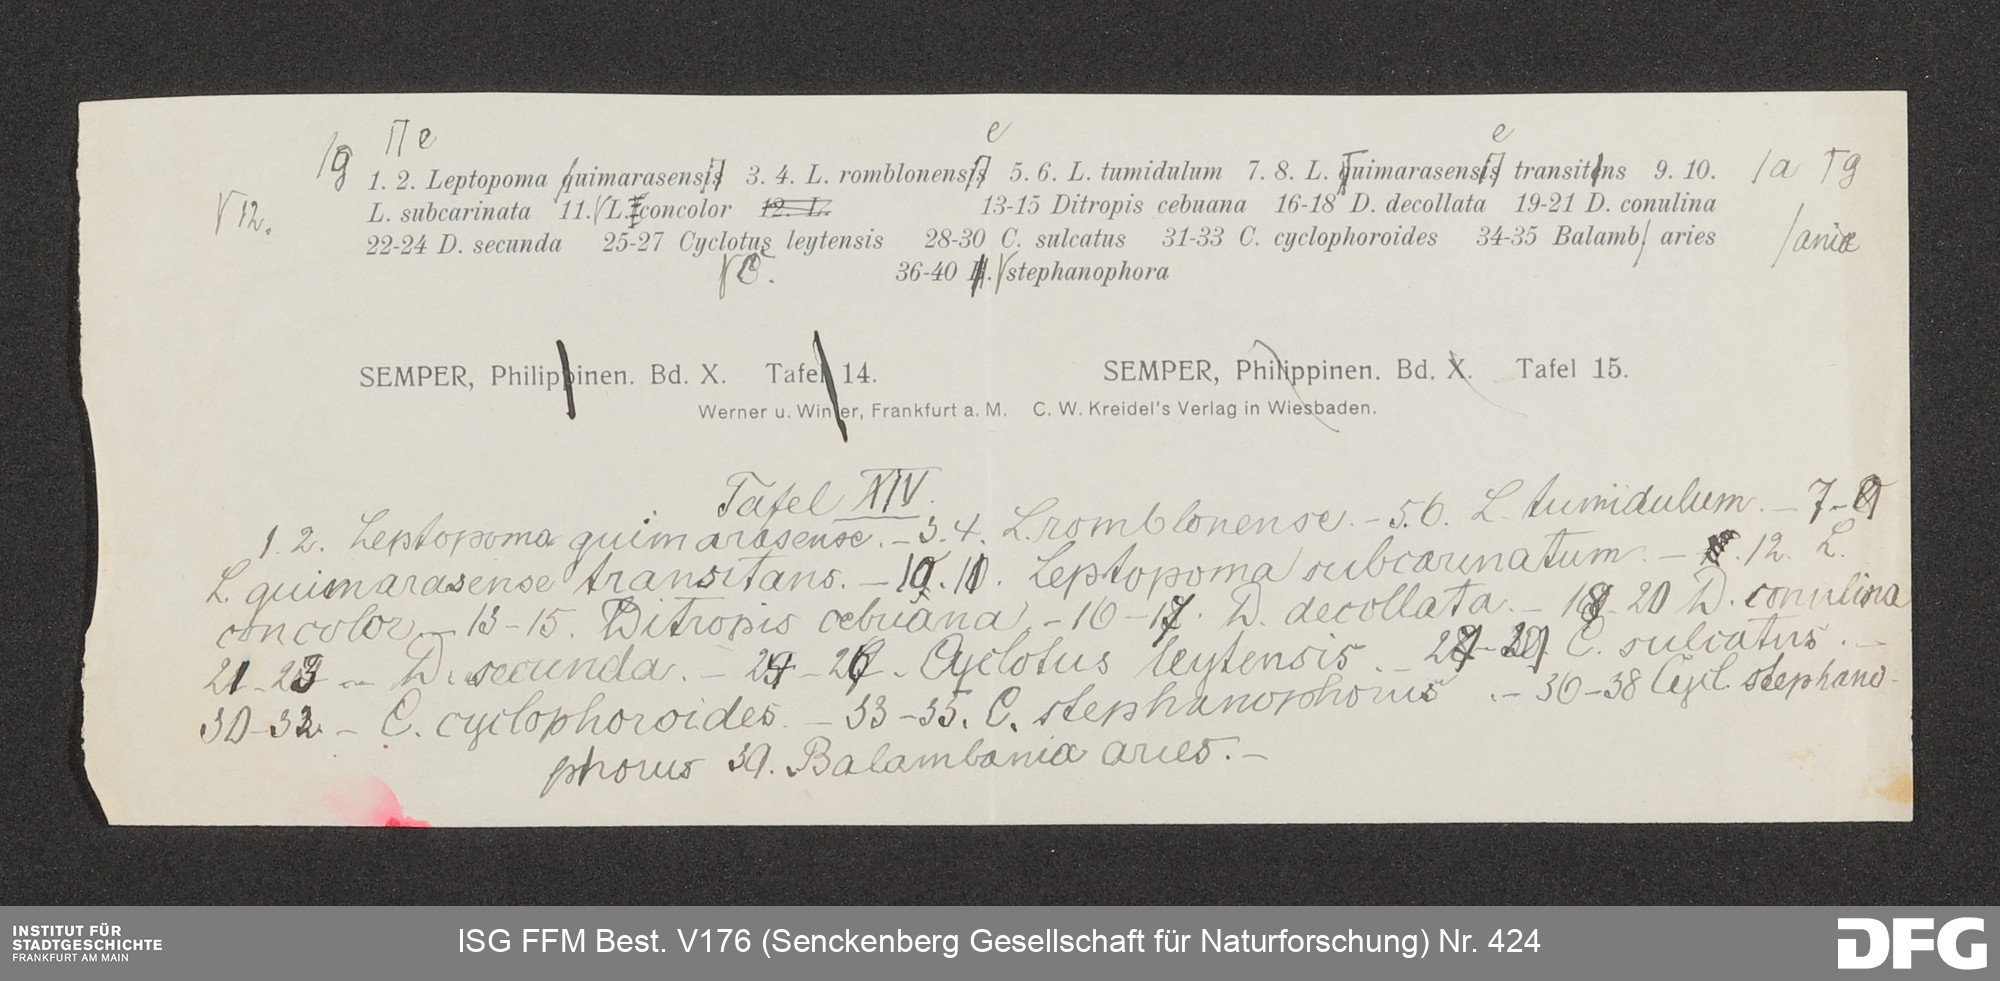 /g ∏ e e e
1. 2. Leptopoma quimarasensis 3. 4. L. romblonensis 5. 6. L. tumidulum 7. 8. L. quimarasensis transitens 9. 10. /a g
12. L. subcarinata 11. L. concolor 12. L. 13-15 Ditropis cebuana 16-18 D. decollata 19-21 D. conulina
22-24 D. secunda 25-27 Cyclotus leytensis 28-30 C. sulcatus 31-33 C. cyclophoroides 34-35 Balamb. aries /ania
C. 36-40 stephanophora
SEMPER, Philippinen. Bd. X. Tafel 14. SEMPER, Philippinen. Bd. X. Tafel 15.
Werner u. Winter, Frankfurt a. M. C. W. Kreidel's Verlag in Wiesbaden.
Tafel XIV.
1. 2. Leptopoma guimarasense. – 3. 4. L. romblonense. – 5. 6. L. tumidulum. – 7-9
L. guimarasense transitans. – 10. 11. Leptopoma subcarinatum. – 12. L.
concolor. – 13-15. Ditropis cebuana. – 16-17. D. decollata. – 18-20 D. conulina
21-23 – D. secunda. – 24-26. Cyclotus leytensis. – 27-29 C. sulcatus. –
30-32. – C. cyclophoroides. – 33-35. C. stephanophorus. – 36-38 Cycl. stephano-
phorus 39. Balambania aries. –
INSTITUT FÜR
STADTGESCHICHTE
FRANKFURT AM MAIN
ISG FFM Best. V176 (Senckenberg Gesellschaft für Naturforschung) Nr. 424
DFG